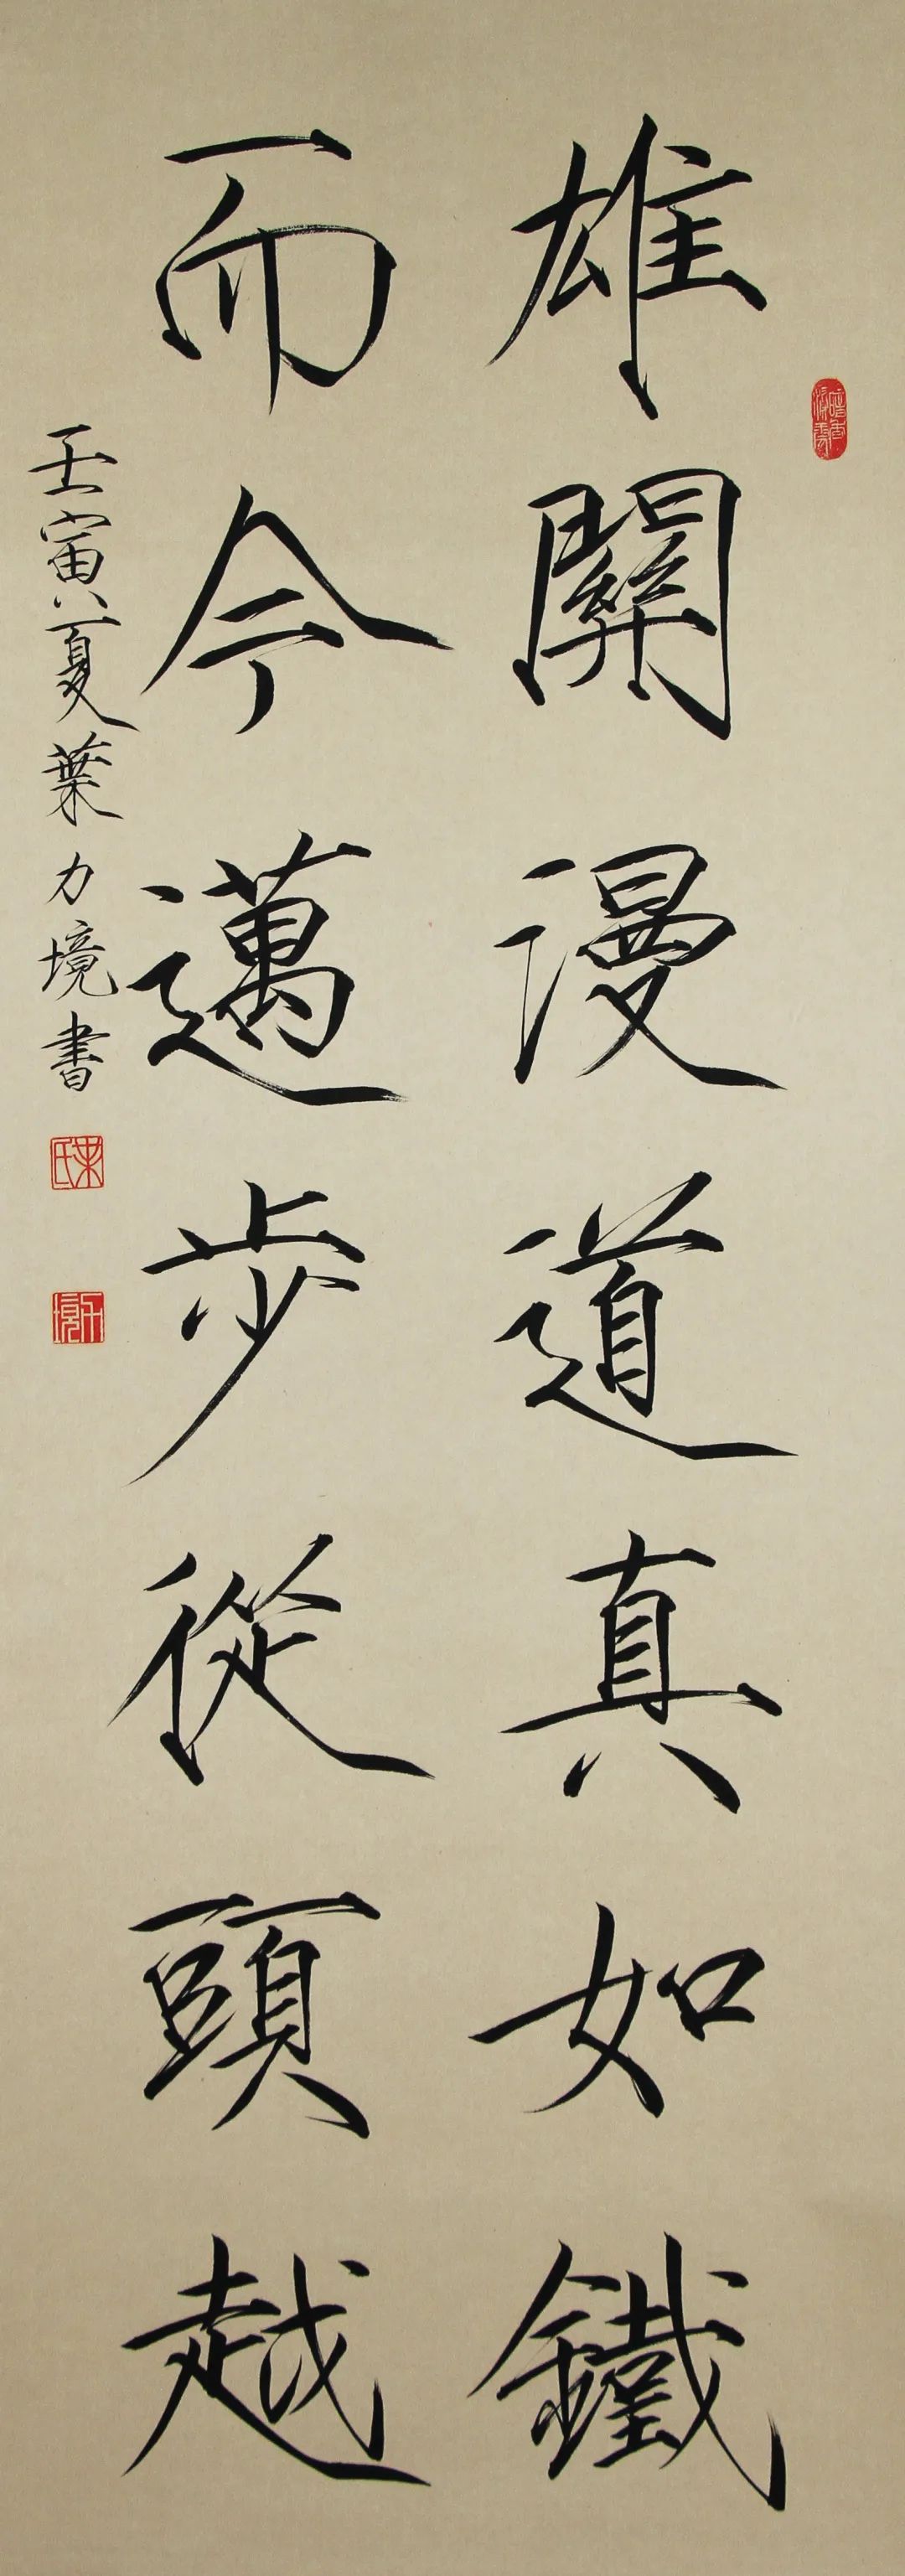 雄關漫道真如鐵
而今邁步從頭越
壬寅夏葉力境書